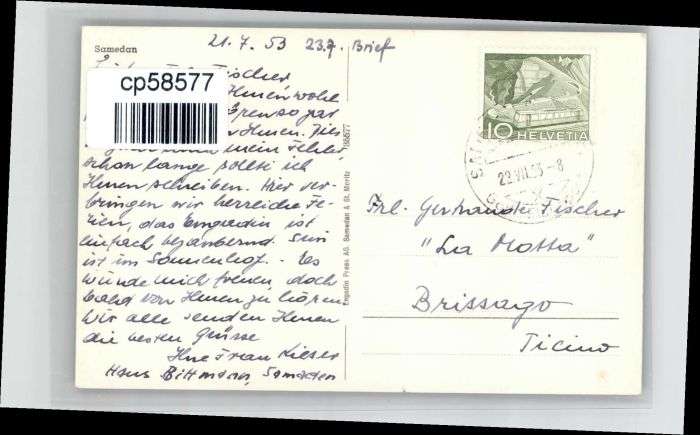 Samedan
21.7.53 23.7. Brief
cp58577
Fischer
Ihnen wohl
Ebenso gut
Ihnen. Hier
mein Fehler,
schon lange sollte ich
Ihnen schreiben. Hier ver-
bringen wir herrliche Fe-
rien, das Engadin ist
einfach bezaubernd. Sind
ist im Sonnenhof. - Es
würde mich freuen, doch
bald von Ihnen zu hören
Wir alle senden Ihnen
die besten Grüsse
Ihre Frau Kieser
Hans Bittmann, Samaden
Engadin Press AG. Samedan & St. Moritz
10 HELVETIA
23.VII.53-8
Frl. Gertraude Fischer
"La Motta"
Brissago
Ticino